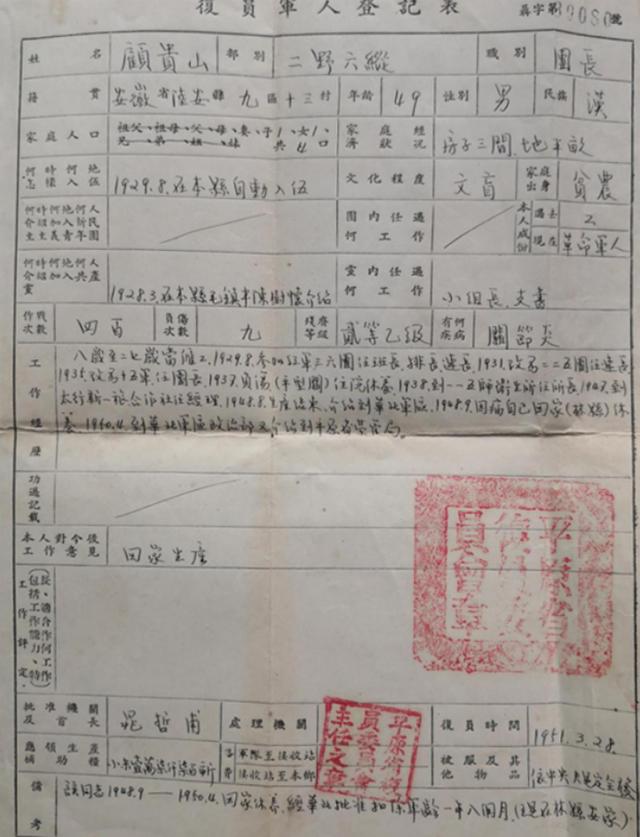 復員軍人登記表
字第 號
姓名 顧貴山 部別 二野六縱 職別 團長
籍貫 安徽省陸安縣九區十三村 年齡 49 性別 男 民族 漢
家庭人口 祖父、祖母、父、母、妻、子1、女1、
兄、弟、姐、妹 共4口 家庭經濟狀況 房子三間、地半畝
何時何地怎樣入伍 1929.8.在本縣自動入伍 文化程度 文盲 家庭出身 貧農
何時何地何人介紹加入新民主主義青年團 團內任過何工作 本人成份 過去 工
現在 革命軍人
何時何地何人介紹加入共產黨 1928.3.在本縣毛鎮半陳樹懷介紹 黨內任過何工作 小組長、支書
作戰次數 四百 負傷次數 九 殘廢等級 貳等乙級 有何疾病 關節炎
工作經歷
八歲至二七歲當僱工,1929.8.參加紅軍三六團任班長、排長、連長,1931.改為二二五團任連長
1935.改為十五軍、任團長,1937.負傷(平型關)住院休養,1938.到一一五師衛生部任所長,1947.到
太行新一旅合作社任經理,1948.8.生產結束、介紹到華北軍區,1948.9.因病自己回家(林縣)休
養.1950.4.到華北軍區政治部又介紹到平原省榮管局。
功過記載
本人對今後工作意見 回家生產
工作評定
(包括工作能力、特長、適合作何工作)
平原省復員委員會章
批准機關及首長 晁哲甫 處理機關 平原省復員委員會主任之章 復員時間 1951.3.28
應領生產補助糧 軍隊至接收站
接收站至本鄉 被服及其他物品
備考
該同志1948.9——1950.4.回家休養,經華北批准扣除軍齡一年八個月(住址在林縣安家)